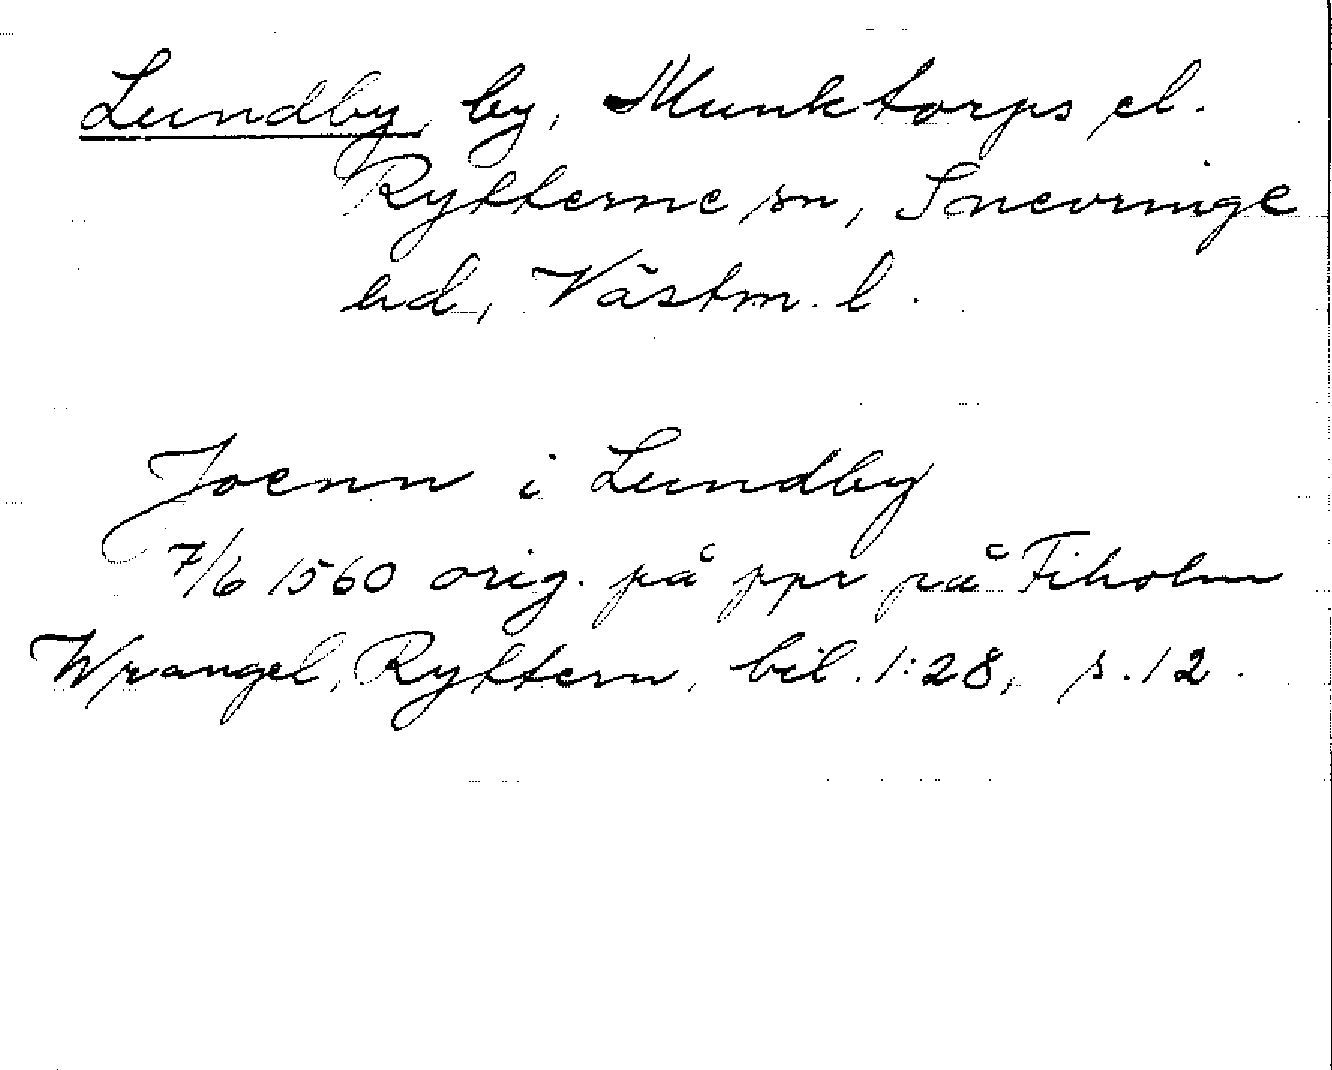 Lundby by, Munktorps el.
Rytterne sn, Snevringe
hd, Västm. l.
Joenn i Lundby
7/6 1560 orig. på ppr på Fiholm
Wrangel, Ryttern, bil. 1:28, s. 12.